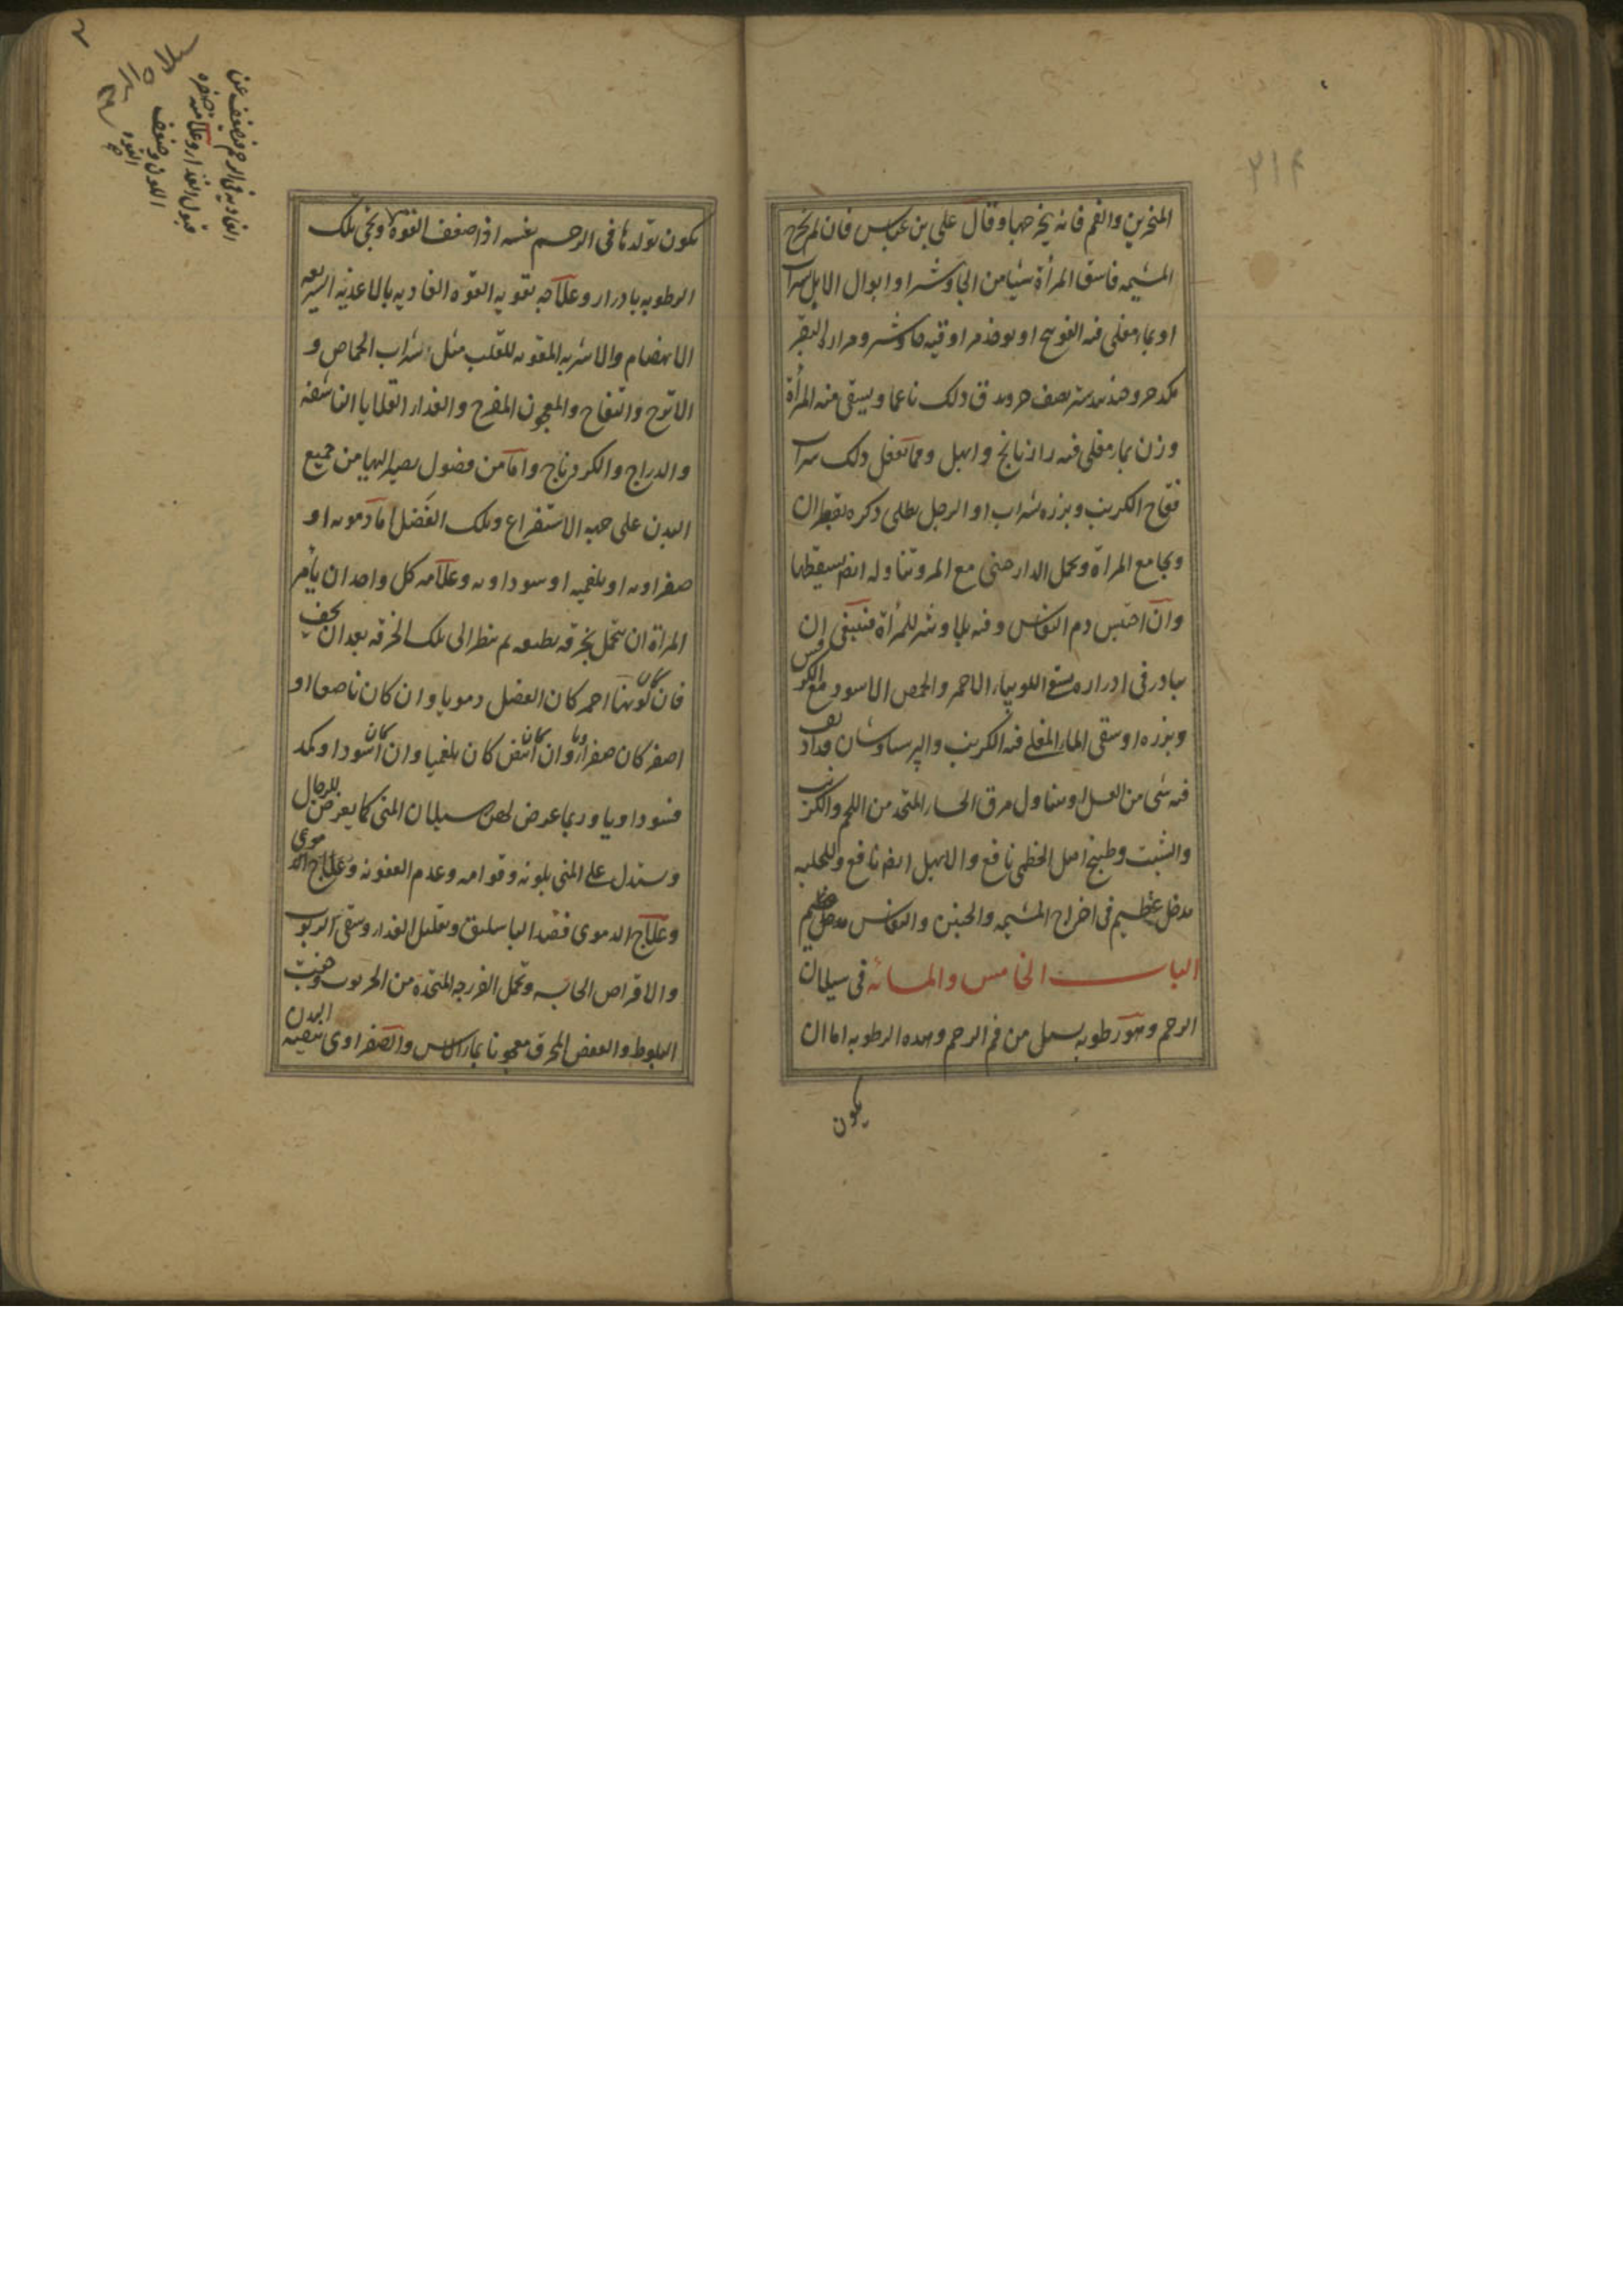 ٢١٤
المنخرين والفم فانه يخرجها وقال على بن عباس فان لم تخرج
المشيمه فاسق المرأة شيئا من الجاوشير او ابوال الابل شرابا
او بماء مغلى فيه الفوتنج او يوخذ مر اوقيه جاوشير ومرارة البقر
دلك ناعما ويسقى منه المرأة
وزن بماء مغلى فيه رازيانج وابهل ومما يفعل ذلك شراب
فقاح الكرنب وبزره شراب او الرجل يطلى ذكره بقطران
ويجامع المرأة وتحمل الدارصينى مع المر وتناوله ايضا يسقطها
وان احتبس دم النفاس وفيه بلايا وشر للمرأة فينبغى ان
يبادر فى ادراره بسقى اللوبياء الاحمر والحمص الاسود مع الكرفس
وبزره او سقى الماء المغلى فيه الكرنب والبرسياوشان وقد اديف
فيه شى من العسل او يتناول مرق الحار المتخذ من اللحم والكرنب
والشبت وطبيخ اصل الخطمى نافع والابهل ايضا نافع وللحلبه
مدخل عظيم فى اخراج المشيمه والجنين والنفاس مدخل عظيم
الباب الخامس والمائه فى سيلان
الرحم وهو رطوبه يسيل من فم الرحم وهذه الرطوبه اما ان
يكون
يكون تولدها فى الرحم نفسه اذا ضعف القوة ويجى تلك
الرطوبه بادرار وعلاجه تقويه القوه الغاديه بالاغذيه السريعه
الانهضام والاشربه المقويه للقلب مثل شراب الحماص و
الاترج والتفاح والمعجون المفرح والغداء القلايا الناشفه
والدراج والكردناج واما من فضول يصير اليها من جميع
البدن على جهه الاستفراغ وتلك الفضل اما دمويه او
صفراويه او بلغميه او سوداويه وعلامه كل واحد ان يأمر
المرأة ان تتحمل بخرقه نظيفه ثم ينظر الى تلك الخرقه بعد ان يجف
فان كان لونها احمر كان الفضل دمويا وان كان ناصعا او
اصفر كان صفراويا وان كان ابيض كان بلغميا وان كان اسود او كمد
فسوداويا وربما عرض لهن سيلان المنى كما يعرض للرجال
ويستدل على المنى بلونه وقوامه وعدم العفونه وعلاج الدموى
وعلاج الدموى فصد الباسليق وتقليل الغداء وسقى الربوب
والاقراص الحابسه وتحمل الفرجه المتخذة من الخرنوب وجفت
البلوط والعفص المحرق معجونا بماء الاس والصفراوى تنقيه البدن
الغاديه فى الرحم وضعف عن
قبول الغداء وعلامته صفره
اللون وضعف
القوه